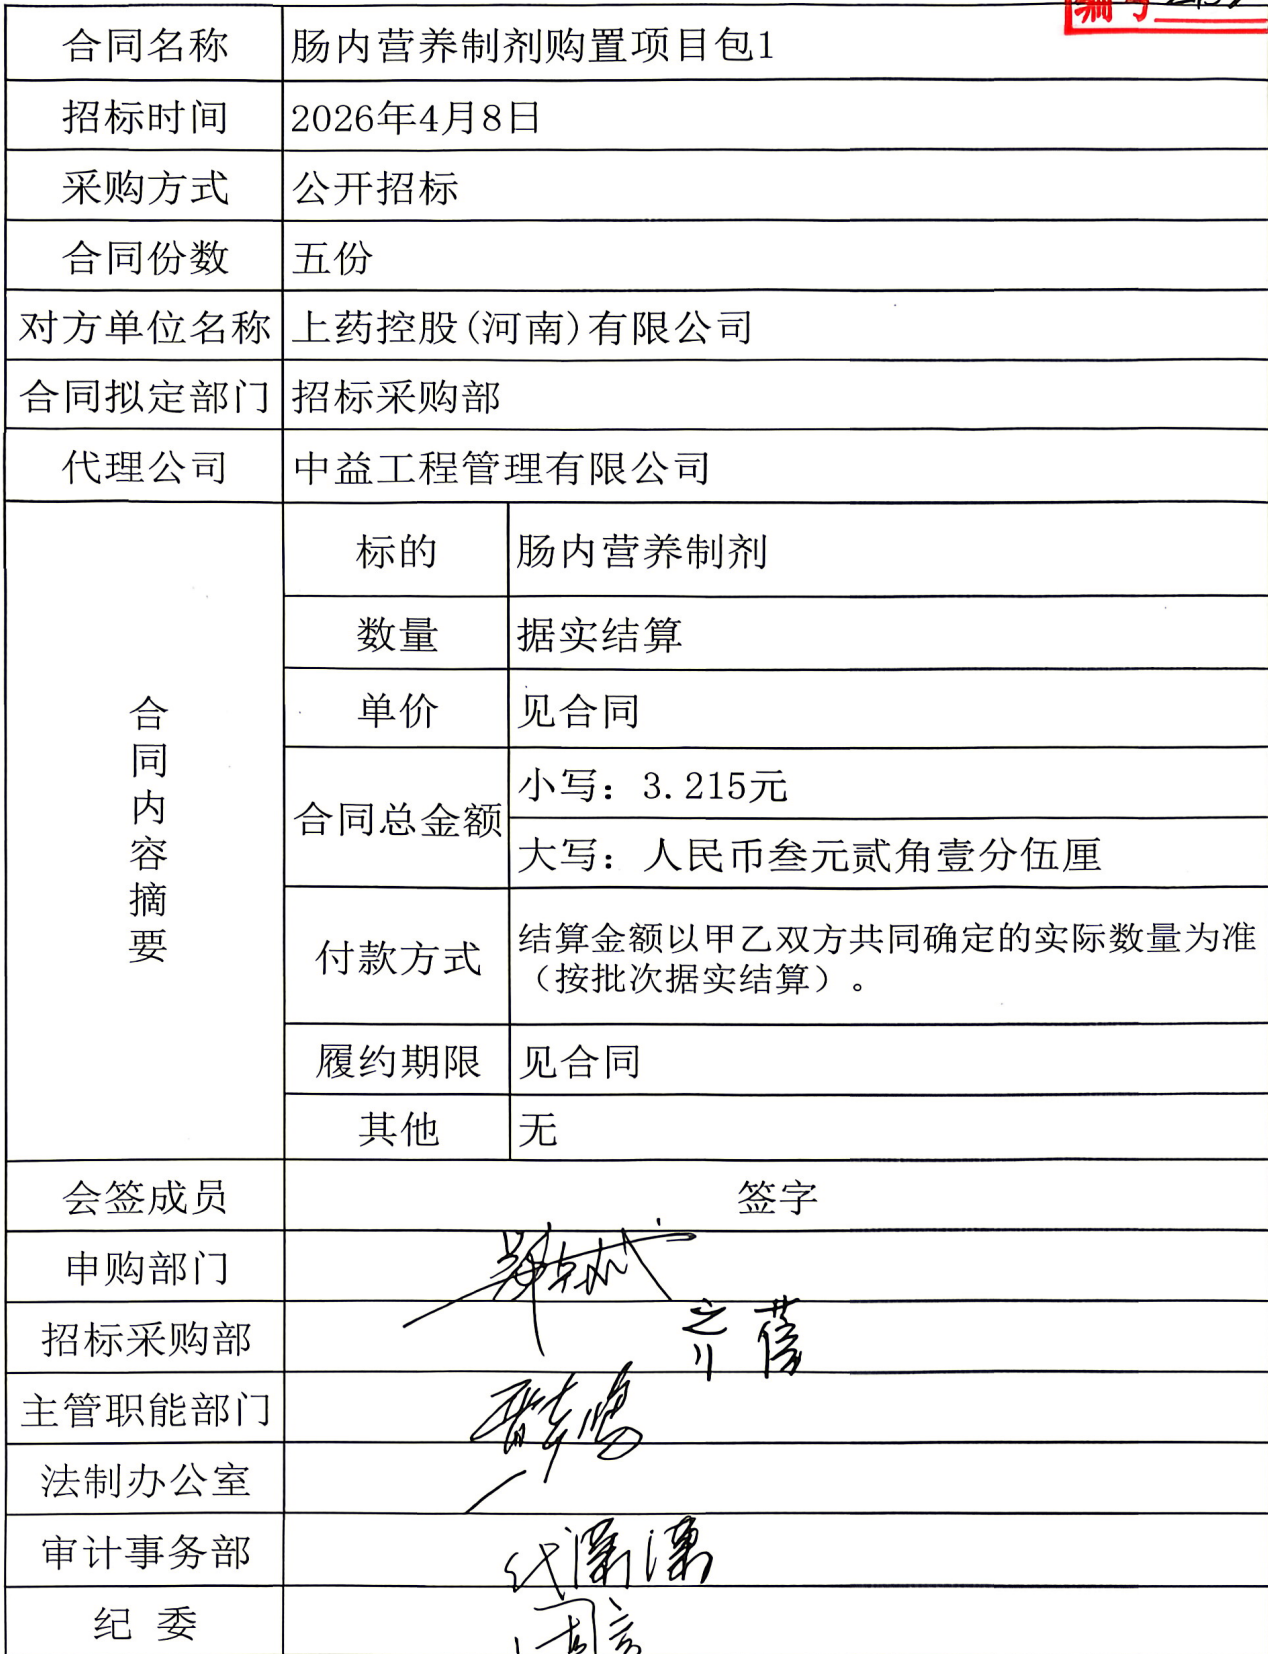 编号
合同名称 肠内营养制剂购置项目包1
招标时间 2026年4月8日
采购方式 公开招标
合同份数 五份
对方单位名称 上药控股(河南)有限公司
合同拟定部门 招标采购部
代理公司 中益工程管理有限公司
合同内容摘要
标的 肠内营养制剂
数量 据实结算
单价 见合同
合同总金额
小写：3.215元
大写：人民币叁元贰角壹分伍厘
付款方式
结算金额以甲乙双方共同确定的实际数量为准
（按批次据实结算）。
履约期限 见合同
其他 无
会签成员 签字
申购部门
招标采购部
主管职能部门
法制办公室
审计事务部 代潇潇
纪 委